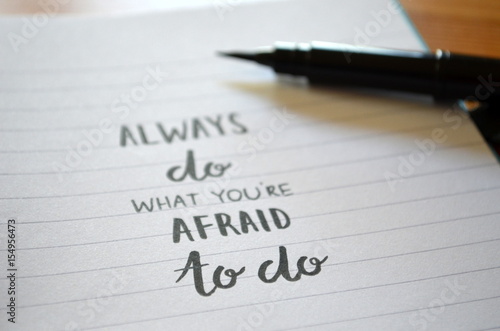 ALWAYS
do
WHAT YOU'RE
AFRAID
to do
Adobe Stock | #154956473